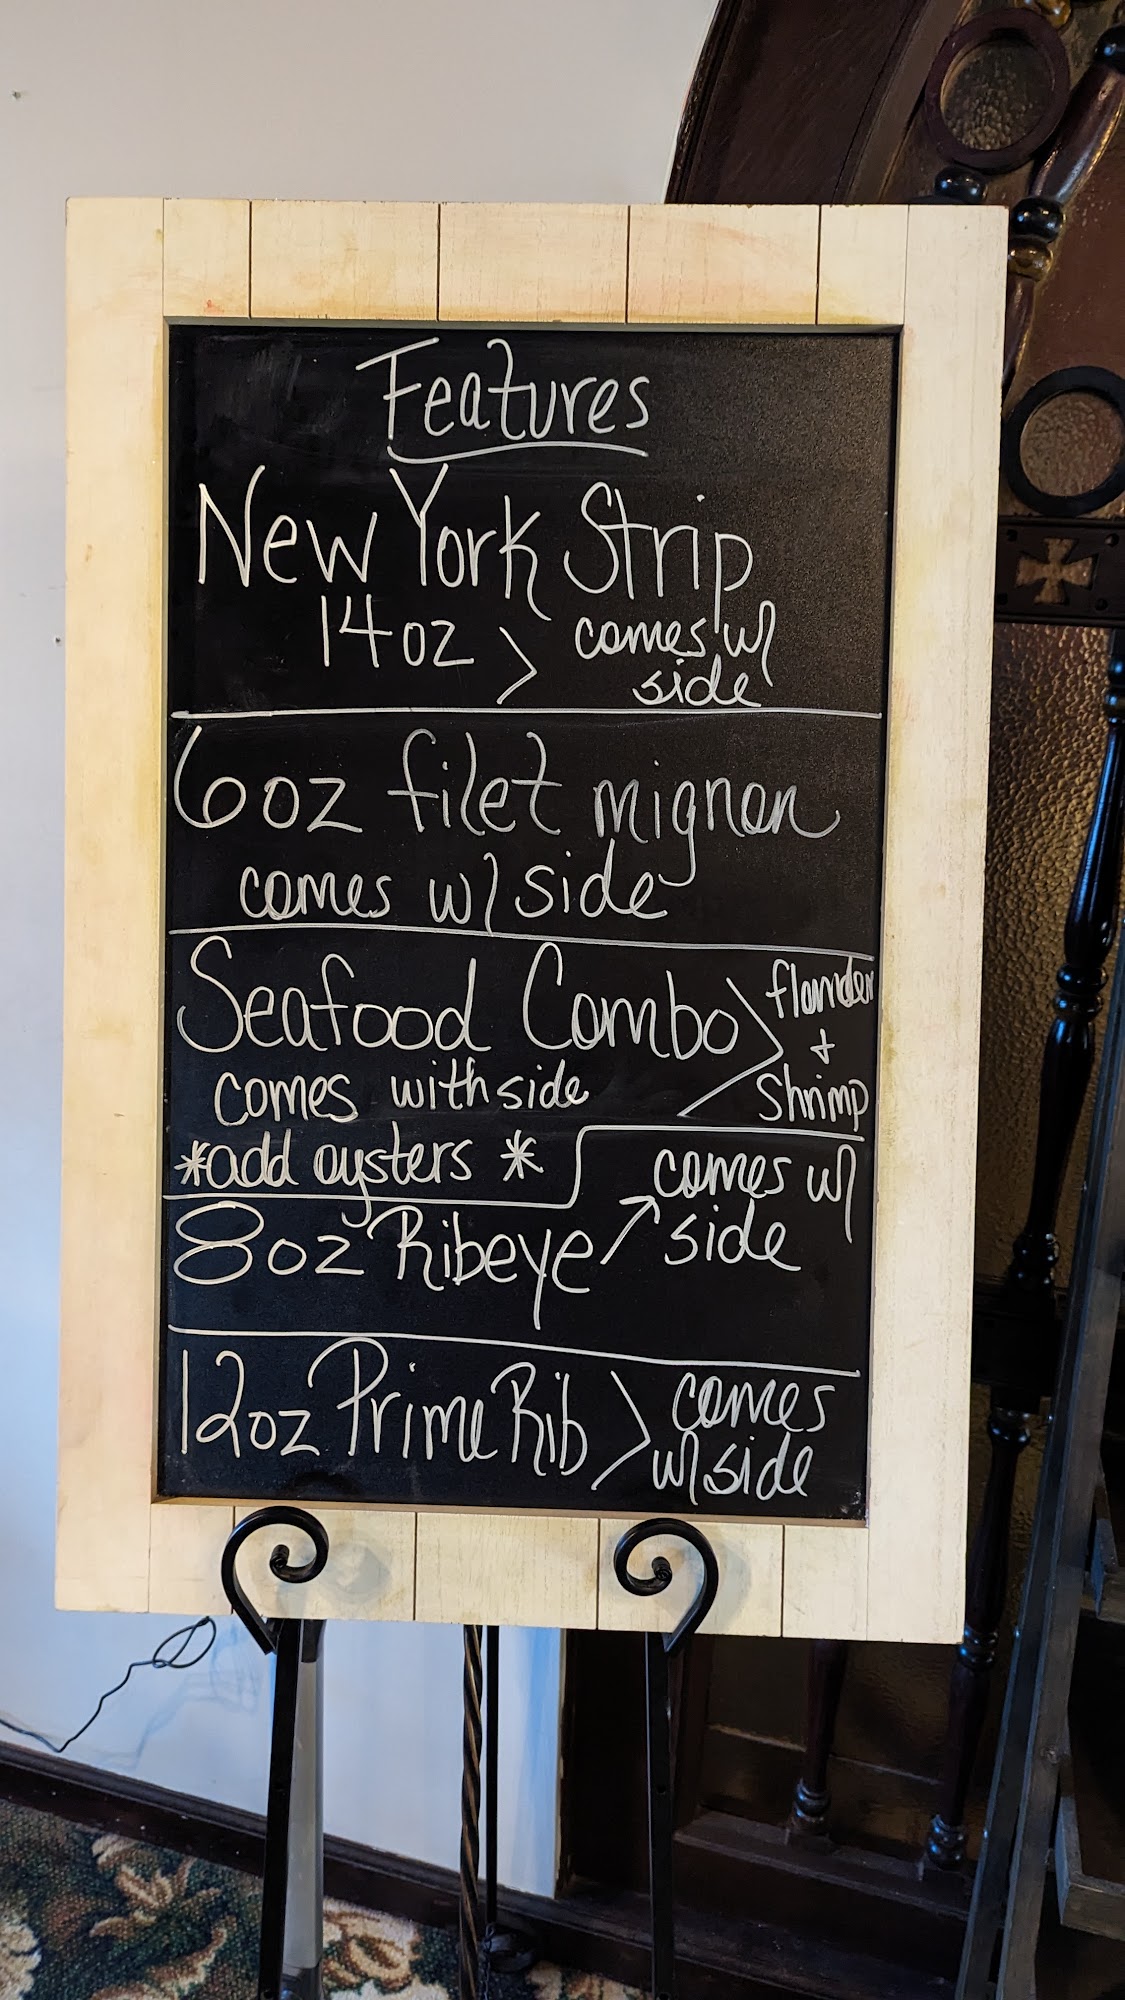 Features
New York Strip
14oz > comes w/
side
6oz filet mignon
comes w/ side
Seafood Combo > flounder
+
shrimp
comes with side
*add oysters *
8oz Ribeye → comes w/
side
12oz Prime Rib > comes
w/ side